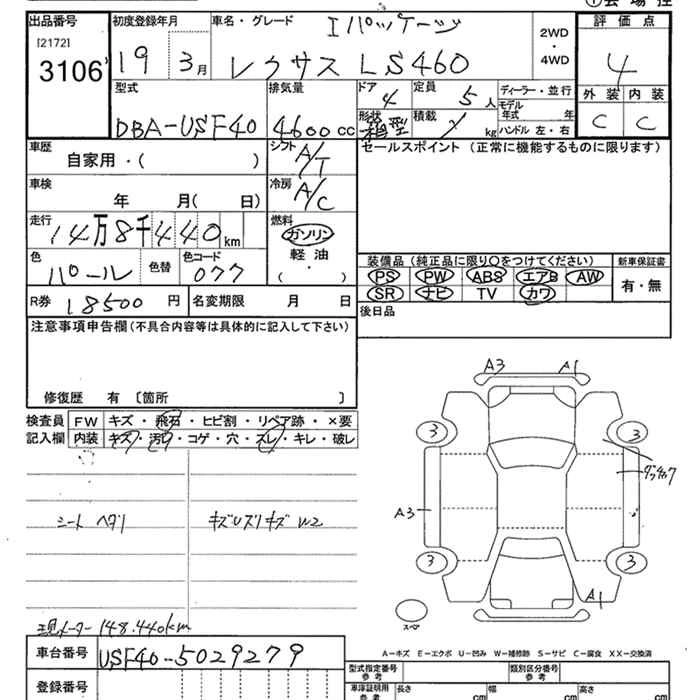 出品番号 初度登録年月 車名・グレード Iパッケージ 2WD・4WD 評価点
[2172] 3106 19 3月 レクサス LS460 4
型式 排気量 ドア 4 定員 5人 ディーラー・並行 外装 内装
モデル年式 年
DBA-USF40 4600cc 形状 箱型 積載 kg ハンドル 左・右 C C
車歴 シフト A/T セールスポイント (正常に機能するものに限ります)
自家用・( )
車検 冷房 A/C
年 月( 日)
走行 燃料
14万8千440km ガソリン
軽油
色 色替 色コード ・
パール 077 ( )
装備品 (純正品に限り○をつけてください) 新車保証書
PS PW ABS エアB AW 有・無
SR ナビ TV カワ
R券 18500円 名変期限 月 日 後日品
注意事項申告欄(不具合内容等は具体的に記入して下さい)
修復歴 有 〔箇所 〕
検査員 FW キズ・飛石・ヒビ割・リペア跡・×要
記入欄 内装 キズ・汚レ・コゲ・穴・スレ・キレ・破レ
A3 A1
3 3
A3
3 3
A1
スペア
シート ヘタリ
現メーター 148.440km
A−キズ E−エクボ U−凹み W−補修跡 S−サビ C−腐食 XX−交換済
車台番号 USF40-5029279 型式指定番号 参考 類別区分番号 参考
登録番号 車庫証明用 参考 長さ cm 幅 cm 高さ cm